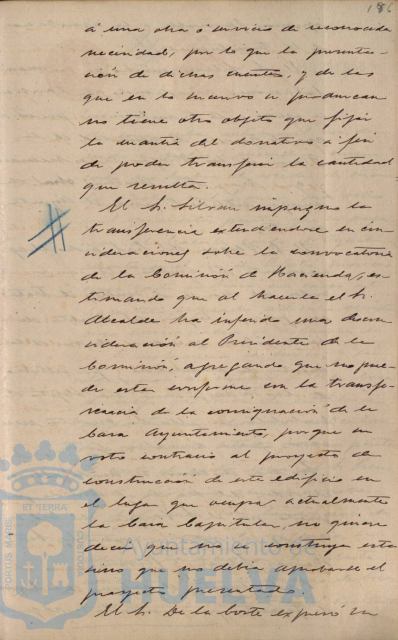 186
á una obra ó servicio de reconocida
necesidad, por lo que la presenta-
ción de dichas cuentas, y de las
que en lo sucesivo se produzcan
no tiene otro objeto que fijar
la cuantía del donativo á fin
de poder transferir la cantidad
que resulta.
El Sr. Silvan impugna la
transferencia estendiendose en con-
sideraciones sobre la convocatoria
de la Comisión de Hacienda, es-
timando que al hacerla el Sr.
Alcalde ha inferido una descon-
sideración al Presidente de la
Comisión, agregando que no pue-
de estar conforme con la transfe-
rencia de la consignación de la
Casa Ayuntamiento, porque su
voto contrario al proyecto de
construcción de este edificio en
el lugar que ocupa actualmente
la Casa Capitular, no quiere
decir que no se construya este
sino que no debia aprobarse el
proyecto presentado.
El Sr. De la Corte expresó su
PORTUS MARIS
ET TERRA
CUSTODIA
Ayuntamiento de
HUELVA